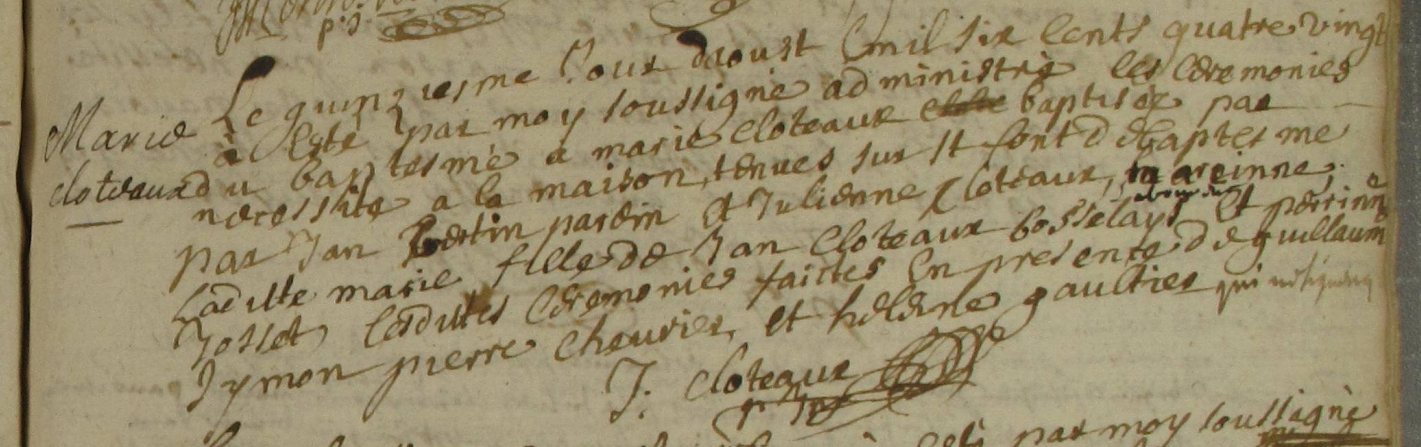 p:r
Le quinziesme Jour daoust Mil six cents quatre vingt
à Esté par moy soussigné administré les Ceremonies
Marie
du baptesme a marie Cloteaux baptisée par
cloteaux
necessité a la maison, tenues sur st font de Baptesme
par Jan bertin parein Et Julienne Cloteaux, mareinne
Laditte marie fille de Jan Cloteaux bosselays Et perrinne
Josset Lesdittes Ceremonies faictes En presence de guillaume
Symon pierre cheurier, et heleine gaultier qui ne signent
J. Cloteaux
par moy soussigné